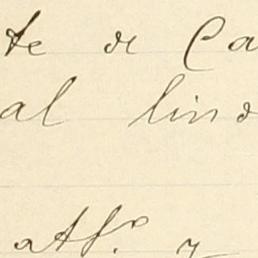 te de Ca
al lind
atfº. y